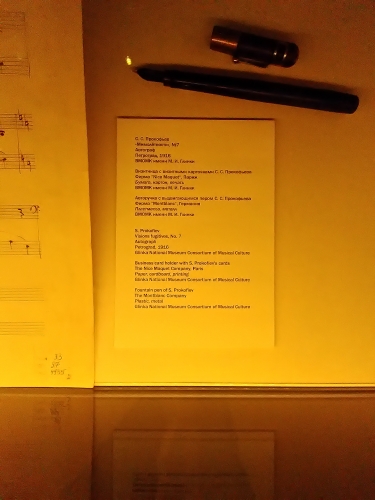 С. С. Прокофьев
«Мимолётности», №7
Автограф
Петроград, 1916
ВМОМК имени М. И. Глинки
Визитница с визитными карточками С. С. Прокофьева
Фирма "Nice Maquet", Париж
Бумага, картон, печать
ВМОМК имени М. И. Глинки
Авторучка с выдвигающимся пером С. С. Прокофьева
Фирма "Montblanc", Германия
Пластмасса, металл
ВМОМК имени М. И. Глинки
S. Prokofiev
Visions fugitives, No. 7
Autograph
Petrograd, 1916
Glinka National Museum Consortium of Musical Culture
Business card holder with S. Prokofiev's cards
The Nice Maquet Company, Paris
Paper, cardboard, printing
Glinka National Museum Consortium of Musical Culture
Fountain pen of S. Prokofiev
The Montblanc Company
Plastic, metal
Glinka National Museum Consortium of Musical Culture